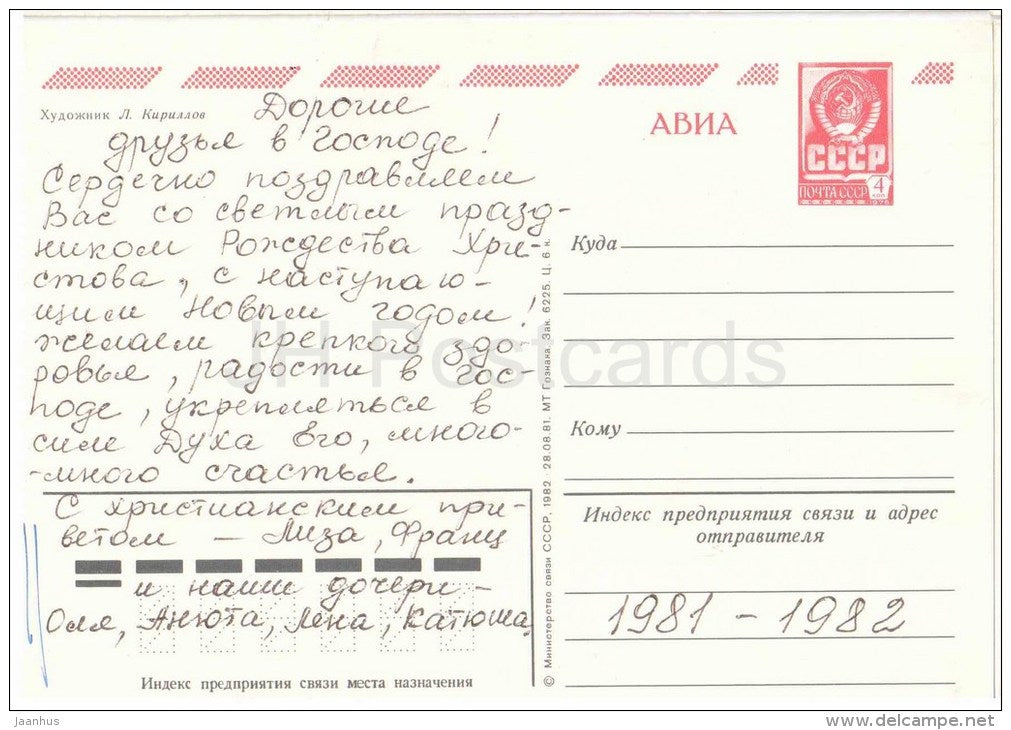 Художник Л. Кириллов
Дорогие
друзья в Господе!
Сердечно поздравляем
Вас со светлым празд-
ником Рождества Хри-
стова, с наступаю-
щим Новым годом!
желаем крепкого здо-
ровья, радости в Гос-
поде, укрепляться в
силе Духа Его, много-
-много счастья.
С христианским при-
ветом – Лиза, Франц
и наши дочери –
Оля, Анюта, Лена, Катюша.
Индекс предприятия связи места назначения
© Министерство связи СССР, 1982. 28.08.81. МТ Гознака. Зак. 6225. Ц. 6 к.
АВИА
СССР
ПОЧТА СССР 4
КОП
Куда
Кому
Индекс предприятия связи и адрес
отправителя
1981 – 1982
JH Postcards
jaanhus
www.delcampe.net